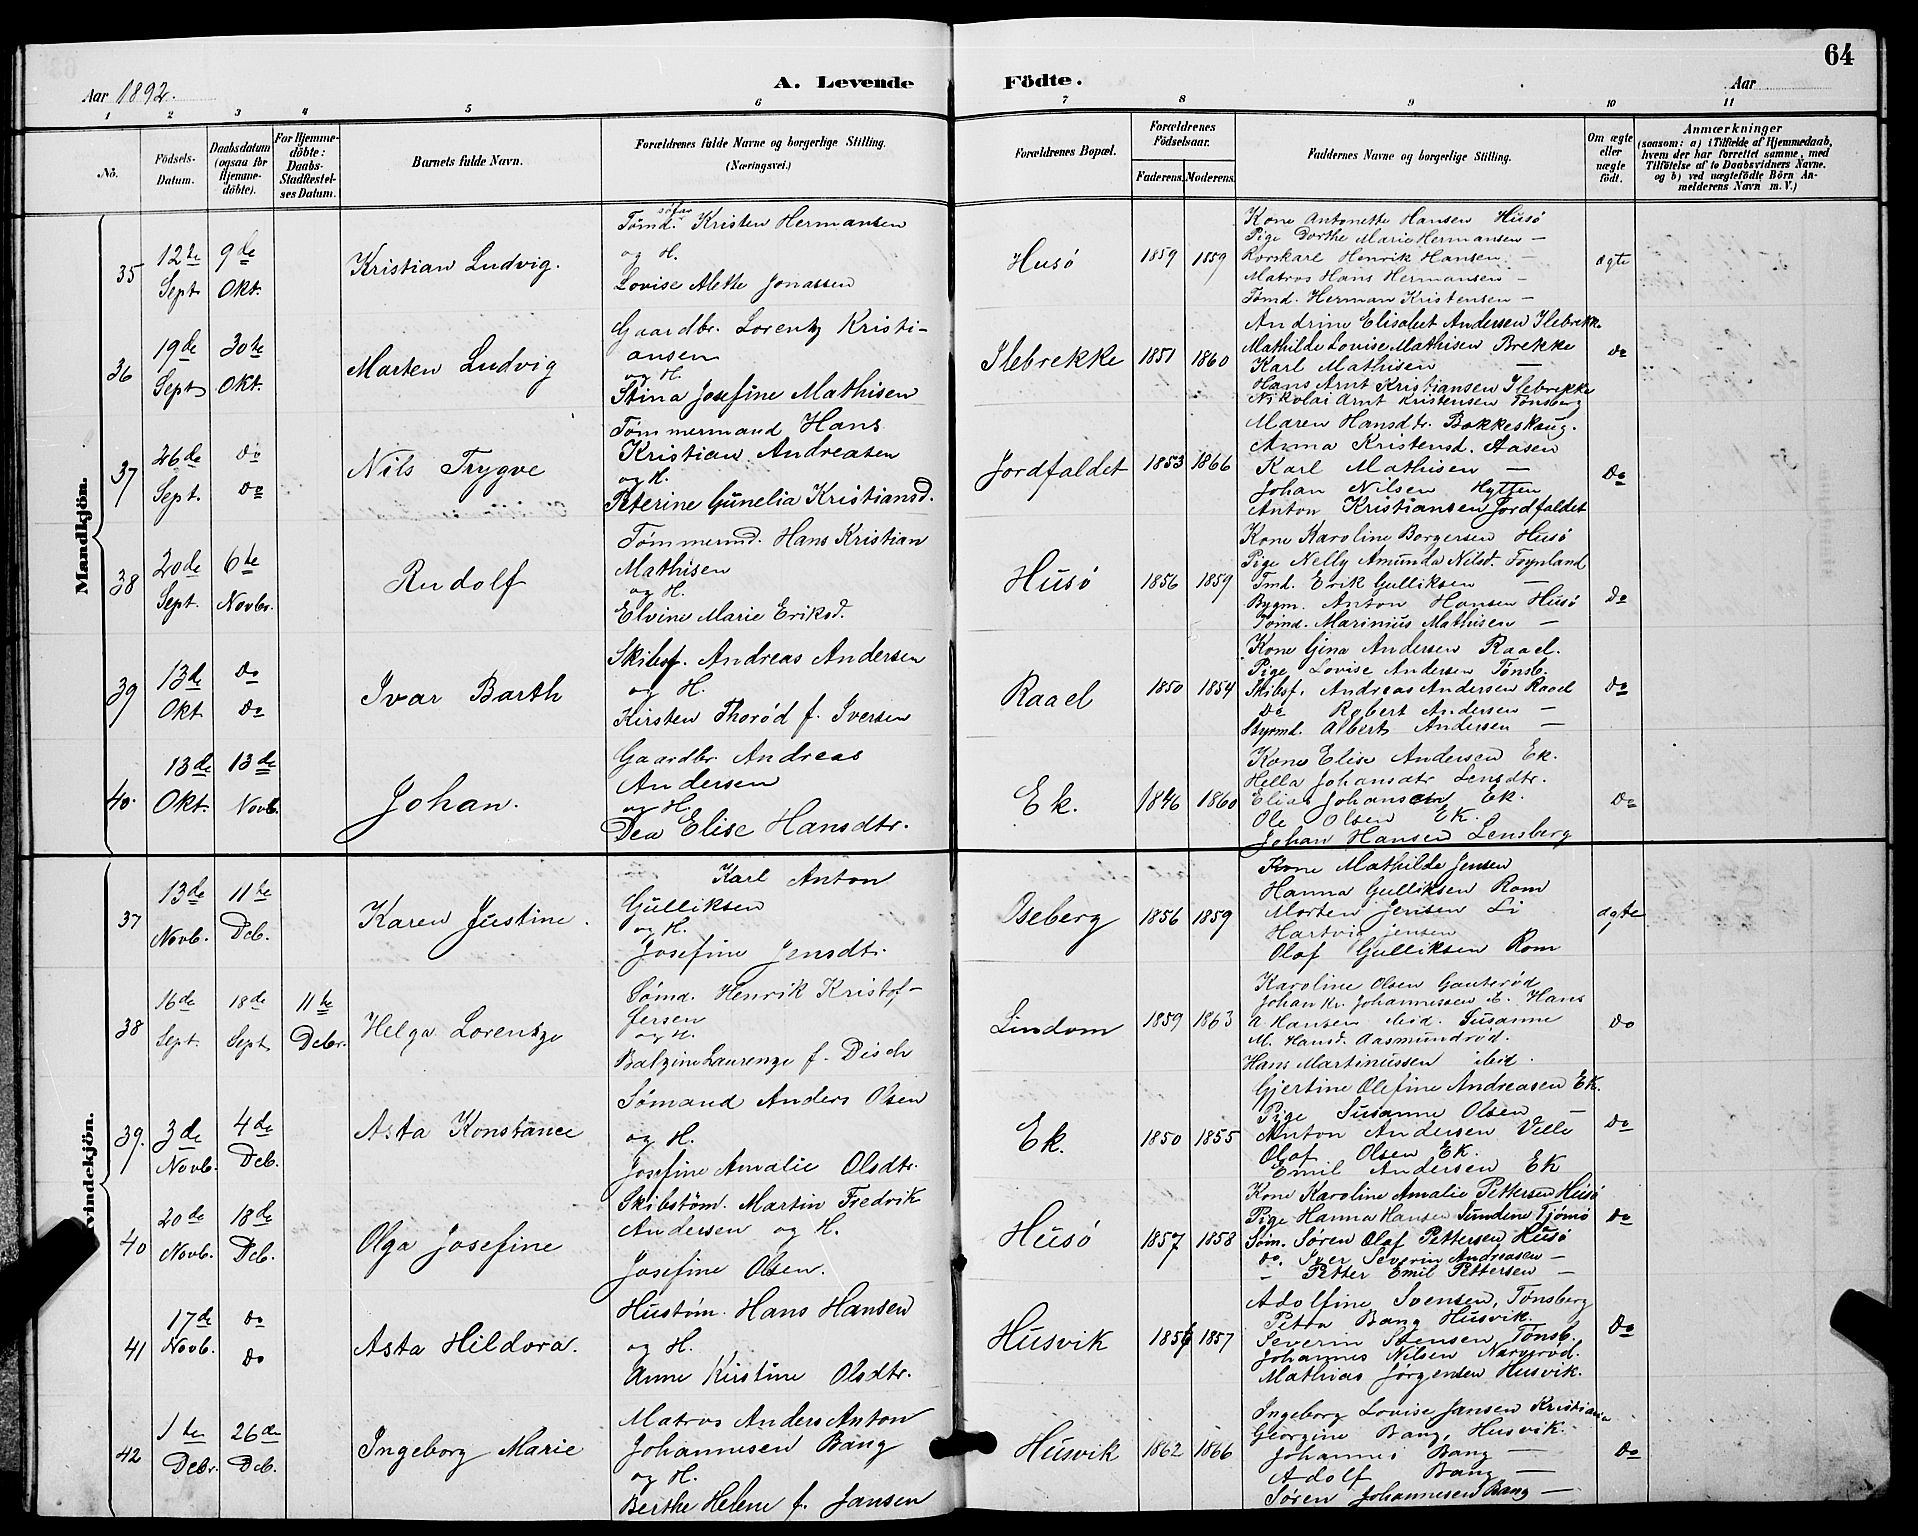 64
Aar 1892.
A. Levende Födte.
Aar
1 2 3 4 5 6 7 8 9 10 11
No.
Födsels-Datum.
Daabsdatum (ogsaa for Hjemmedöbte).
For Hjemmedöbte: Daabs-Stadfæstelses Datum.
Barnets fulde Navn.
Forældrenes fulde Navne og borgerlige Stilling.
(Næringsvei.)
Forældrenes Bopæl.
Forældrenes Födselsaar.
Faderens. Moderens.
Faddernes Navne og borgerlige Stilling.
Om ægte eller uægte födt.
Anmærkninger
(saasom: a) i Tilfælde af Hjemmedaab, hvem der har forrettet samme, med Tilföielse af to Daabsvidners Navne. og b) ved uægtefödte Börn Anmelderens Navn m. V.)
Mandkjön.
35
12te Sept.
9de Okt.
Kristian Ludvig.
Tømd. Kristen Hermansen
og H.
Lovise Alette Jonassen
Husö
1859 1859
Kone Antonette Hansen Husö
Pige Dorthe Marie Hermansen —
Henrik Hansen —
Matros Hans Hermansen —
Tømd. Herman Kristensen —
ægte
36
19de Sept
30te Okt.
Marten Ludvig
Gaardbr. Lorentz Kristi-
ansen
og H.
Stina Josefine Mathisen
Ilebrekke
1851 1860
Andrine Elisabet Andersen Ilebrekk.
Mathilde Lovise Mathisen Brekke
Karl Mathisen —
Hans Arnt Kristiansen Ilebrekke
Nikolai Arnt Kristensen Tønsberg
do
37
26de Sept.
do do
Nils Trygve
Tømmermand Hans
Kristian Andreasen
og H.
Peterine Gunelia Kristiansd.
Jordfaldet
1853 1866
Maren Hansdtr. Bakkeskaug.
Anna Kristensd. Aasen
Karl Mathisen —
Johan Nilsen Hytten
Anton Kristiansen Jordfaldet
do
38
20de Sept.
6te Novbr.
Rudolf
Tømmermd. Hans Kristian
Mathisen
og H.
Elvine Marie Eriksd.
Husö
1856 1859
Kone Karoline Borgersen Husö
Pige Nelly Amunda Nilsd. Toynland
Tmd. Erik Gulliksen —
Bygm. Anton Hansen Husö
Tømd. Marinius Mathisen —
do
39
13de Okt.
do do
Ivar Barth
Skibsf. Andreas Andersen
og H.
Kirsten Thorød f. Iversen
Raael
1850 1854
Kone Gina Andersen Raael.
Pige Lovise Andersen Tønsb.
Skibsf. Andreas Andersen Raael
do Robert Andersen —
Styrmd. Albert Andersen —
do
40.
13de Okt.
13de Novb.
Johan.
Gaardbr Andreas
Andersen
og H.
Dea Elise Hansdtr.
Ek.
1846 1860
Kone Elise Andersen Ek.
Hella Johansdtr
Elias Johansen Ek.
Ole Olsen Ek.
Johan Hansen Lensberg
do
Kvindekjön.
37
13de Novb.
11te Deb.
Karen Justine.
Karl Anton
Gulliksen
og H.
Josefine Jensdtr.
Oseberg
1856 1859
Kone Mathilde Jensen
Hanna Gulliksen Rom
Morten Jensen Li
Hartvig Jensen
Olaf Gulliksen Rom
ægte
38
16de Sept.
18de Sept
11te Debr.
Helga Lorentze
Sømd. Henrik Kristof-
fersen
og H.
Balzine Laurenze f. Disch
Lindom
1859 1863
Karoline Olsen Gauterød
Johan Kr. Johannessen E. Hans
A. Hansen ibid. Susanne
M. Hansd. Aasmundrød.
Hans Martinussen ibid.
do
39.
3de Novb.
4de Deb.
Asta Konstance
Sømand Anders Olsen
og H.
Josefine Amalie Olsdtr.
Ek.
1850 1855
Gjertine Olefine Andreasen Ek.
Pige Susanne Olsen —
Anton Andersen Velle
Olaf Olsen Ek.
Emil Andersen Ek
do
40
20de Novb.
18de Deb.
Olga Josefine
Skibstøm. Martin Fredrik
Andersen og H.
Josefine Olsen.
Husö
1857 1858
Kone Karoline Amalie Pettersen Husö
Pige Hanna Hansen Sundene Tjömö
Søm. Søren Olaf Pettersen Husö
do. Iver Severin Andreasen —
- Petter Emil Pettersen —
do
41
17de Novb.
do do
Asta Hildora.
Hustøm. Hans Hansen
og H.
Anne Kirstine Olsdtr.
Husvik
1856 1857
Adolfine Svensen, Tønsberg
Petra Bang Husvik.
Severin Svensen, Tønsb.
Johannes Nilsen Narverød.
Mathias Jørgensen Husvik.
do
42
1ten Debr.
26de Deb.
Ingeborg Marie
Matros Anders Anton
Johannesen Bang
og H.
Berthe Helene f. Jansen
Husvik
1862 1866
Ingeborg Lovise Jansen Kristiania
Georgine Bang, Husvik.
Johannes Bang —
Adolf Bang —
Søren Johannesen Bang —
do